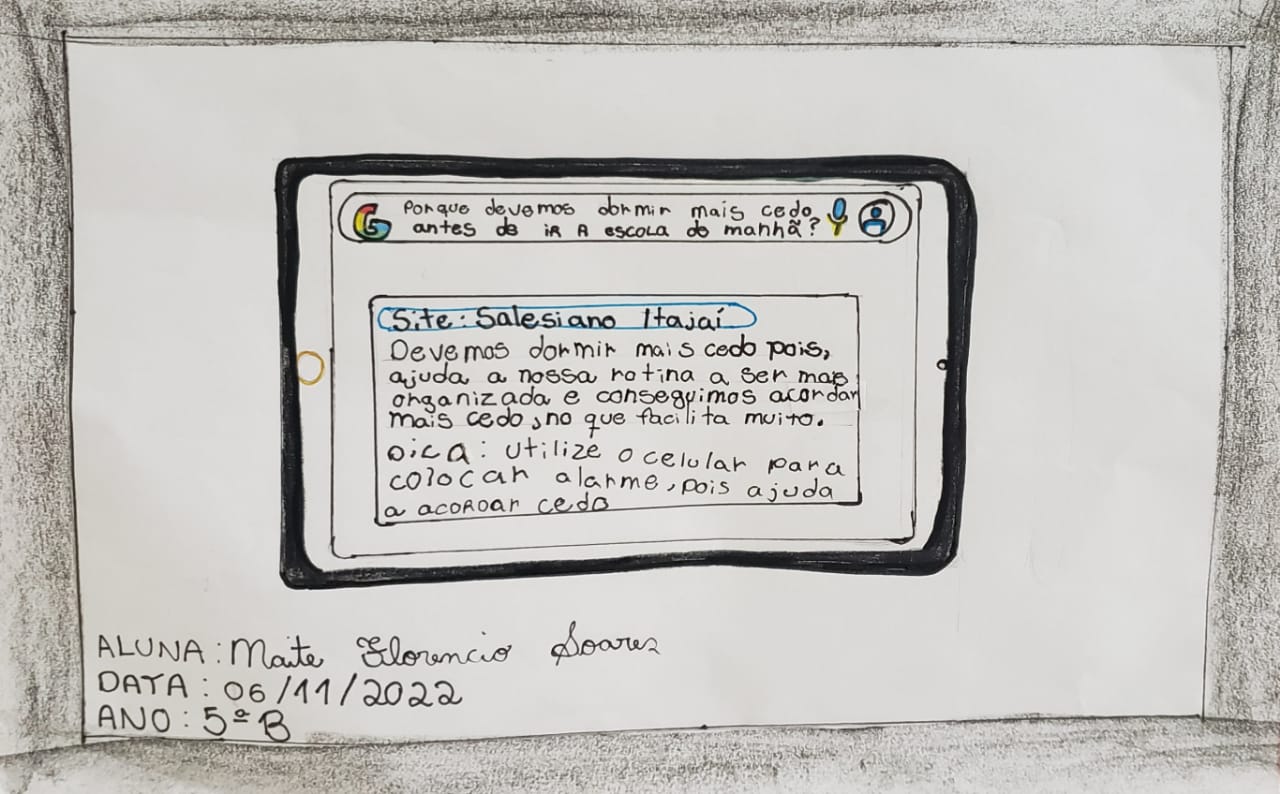 G Porque devemos dormir mais cedo,
antes de iR A escola de manhã?
Site: Salesiano Itajaí
Devemos dormir mais cedo pois,
ajuda a nossa rotina a ser mais
organizada e conseguimos acordar
mais cedo, no que facilita muito.
Dica: utilize o celular para
colocar alarme, pois ajuda
a acoRDar cedo
ALUNA: Maite Florencio Soares
DATA: 06/11/2022
ANO: 5ª B